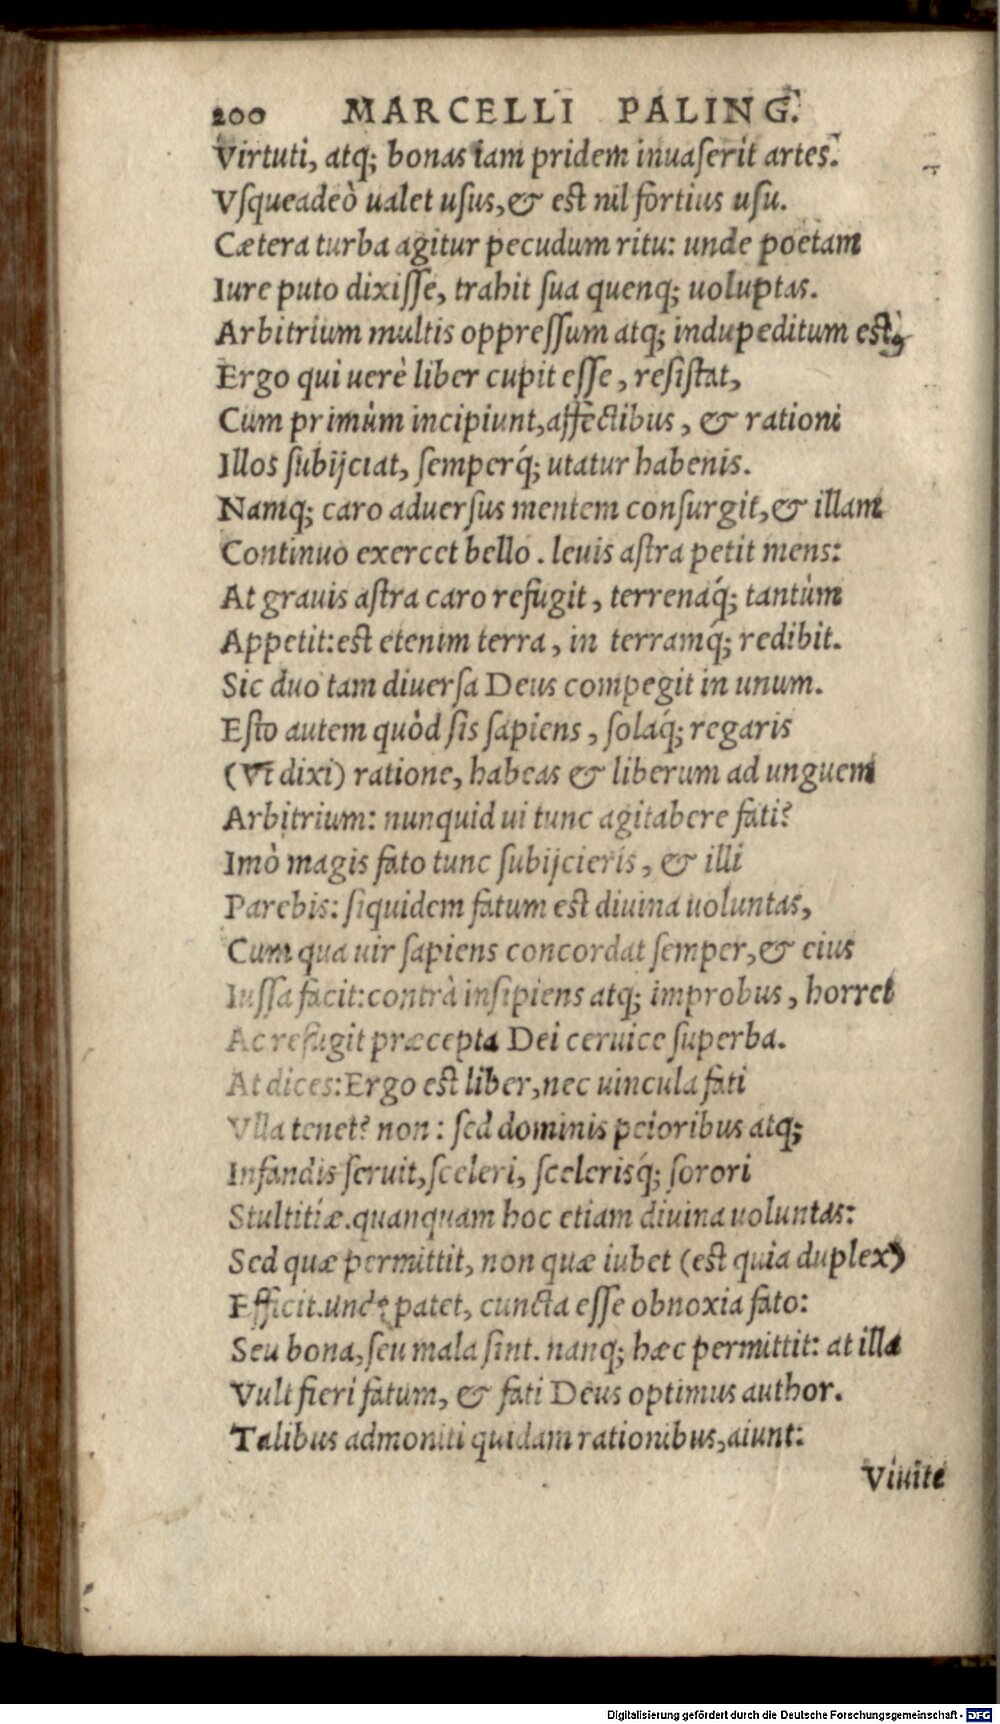 200 MARCELLI PALING.
Virtuti, atq; bonas iam pridem inuaserit artes.
Vsqueadeò ualet usus, & est nil fortius usu.
Cætera turba agitur pecudum ritu: unde poëtam
Iure puto dixisse, trahit sua quenq; uoluptas.
Arbitrium multis oppressum atq; indupeditum est,
Ergo qui uerè liber cupit esse, resistat,
Cum primùm incipiunt, affectibus, & rationi
Illos subijciat, semperq́; utatur habenis.
Namq; caro aduersus mentem consurgit, & illam
Continuo exercet bello. leuis astra petit mens:
At grauis astra caro refugit, terrenaq́; tantùm
Appetit: est etenim terra, in terramq́; redibit.
Sic duo tam diuersa Deus compegit in unum.
Esto autem quòd sis sapiens, solaq́; regaris
(Vt dixi) ratione, habeas & liberum ad unguem
Arbitrium: nunquid ui tunc agitabere fati?
Imò magis fato tunc subijcieris, & illi
Parebis: siquidem fatum est diuina uoluntas,
Cum qua uir sapiens concordat semper, & eius
Iussa facit: contrà insipiens atq; improbus, horret
Ac refugit præcepta Dei ceruice superba.
At dices: Ergo est liber, nec uincula fati
Vlla tenet? non: sed dominis peioribus atq;
Infandis seruit, sceleri, scelerisq́; sorori
Stultitiæ. quanquam hoc etiam diuina uoluntas:
Sed quæ permittit, non quæ iubet (est quia duplex)
Efficit. unde patet, cuncta esse obnoxia fato:
Seu bona, seu mala sint. nanq; hæc permittit: at illa
Vult fieri fatum, & fati Deus optimus author.
Talibus admoniti quidam rationibus, aiunt:
Viuite
Digitalisierung gefördert durch die Deutsche Forschungsgemeinschaft - DFG